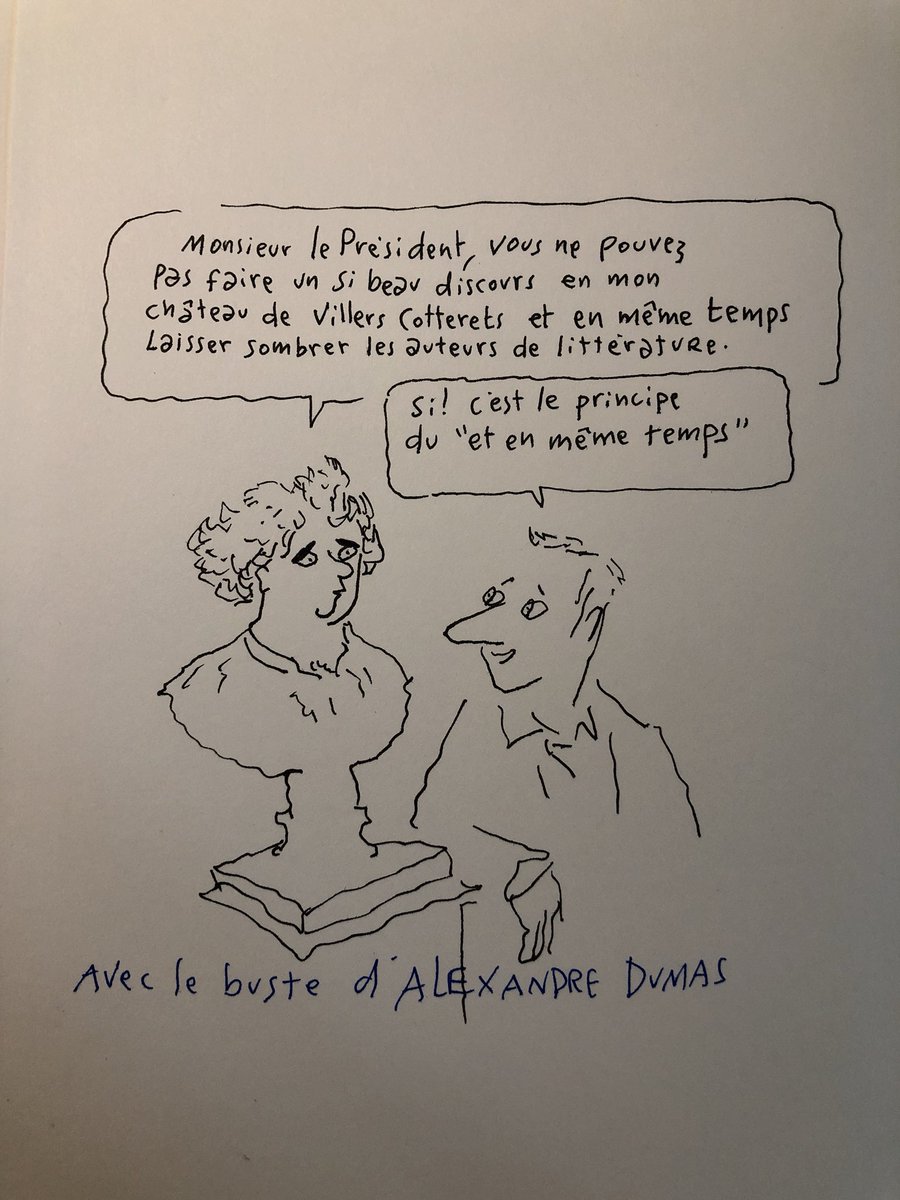 Monsieur le Président, vous ne pouvez
pas faire un si beau discours en mon
château de Villers Cotterets et en même temps
Laisser sombrer les auteurs de littérature.
Si! c'est le principe
du "et en même temps"
Avec le buste d'ALEXANDRE DUMAS